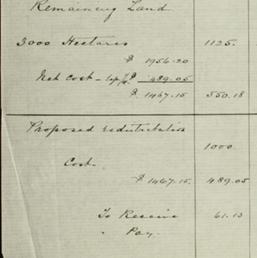 Remaining Land
3000 Hectares 1125.
₽ 1956-20
Net cost - ₽ 489.05
₽ 1467-15 550.18
Proposed redistribution
1000
Cost
₽ 1467.15. 489.05
To Receive 61.13
" Pay.